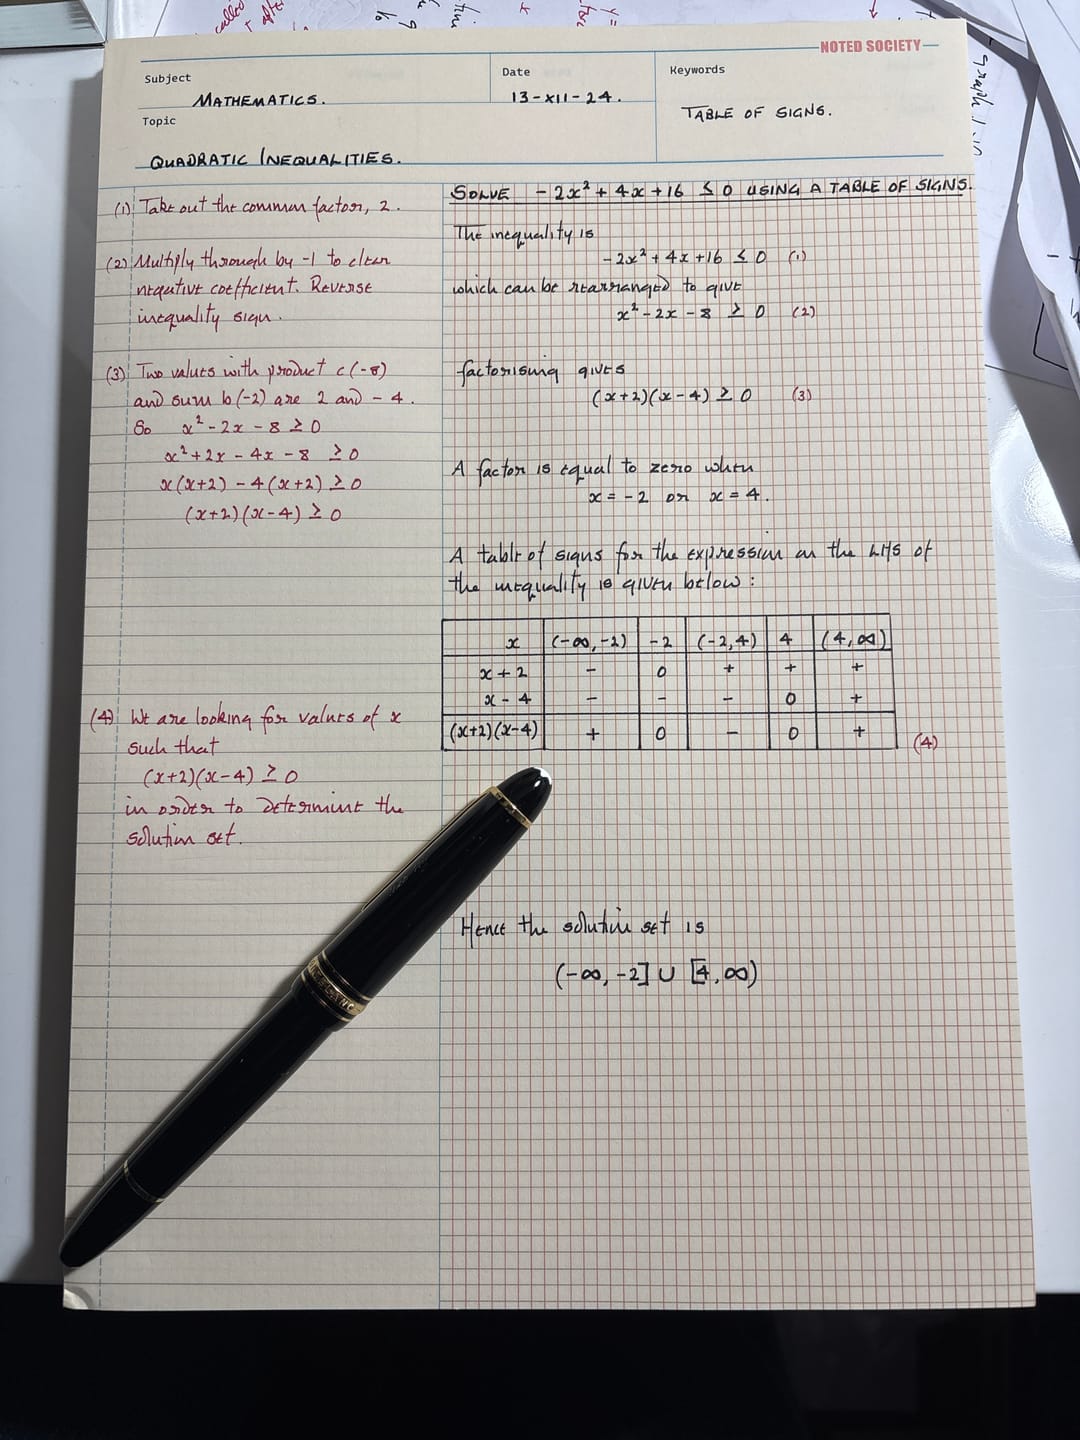 NOTED SOCIETY
Subject
MATHEMATICS.
Date
13-XII-24.
Keywords
TABLE OF SIGNS.
Topic
QUADRATIC INEQUALITIES.
(1) Take out the common factor, 2.
(2) Multiply through by -1 to clear
negative coefficient. Reverse
inequality sign.
(3) Two values with product c(-8)
and sum b(-2) are 2 and -4.
So x² - 2x - 8 ≥ 0
x² + 2x - 4x - 8 ≥ 0
x(x+2) - 4(x+2) ≥ 0
(x+2)(x-4) ≥ 0
(4) We are looking for values of x
such that
(x+2)(x-4) ≥ 0
in order to determine the
solution set.
SOLVE -2x² + 4x + 16 ≤ 0 USING A TABLE OF SIGNS.
The inequality is
-2x² + 4x + 16 ≤ 0 (1)
which can be rearranged to give
x² - 2x - 8 ≥ 0 (2)
factorising gives
(x+2)(x-4) ≥ 0 (3)
A factor is equal to zero when
x = -2 or x = 4.
A table of signs for the expression on the LHS of
the inequality is given below:
x (-∞, -2) -2 (-2,4) 4 (4,∞)
x + 2 - 0 + + +
x - 4 - - - 0 +
(x+2)(x-4) + 0 - 0 + (4)
Hence the solution set is
(-∞, -2] ∪ [4, ∞)